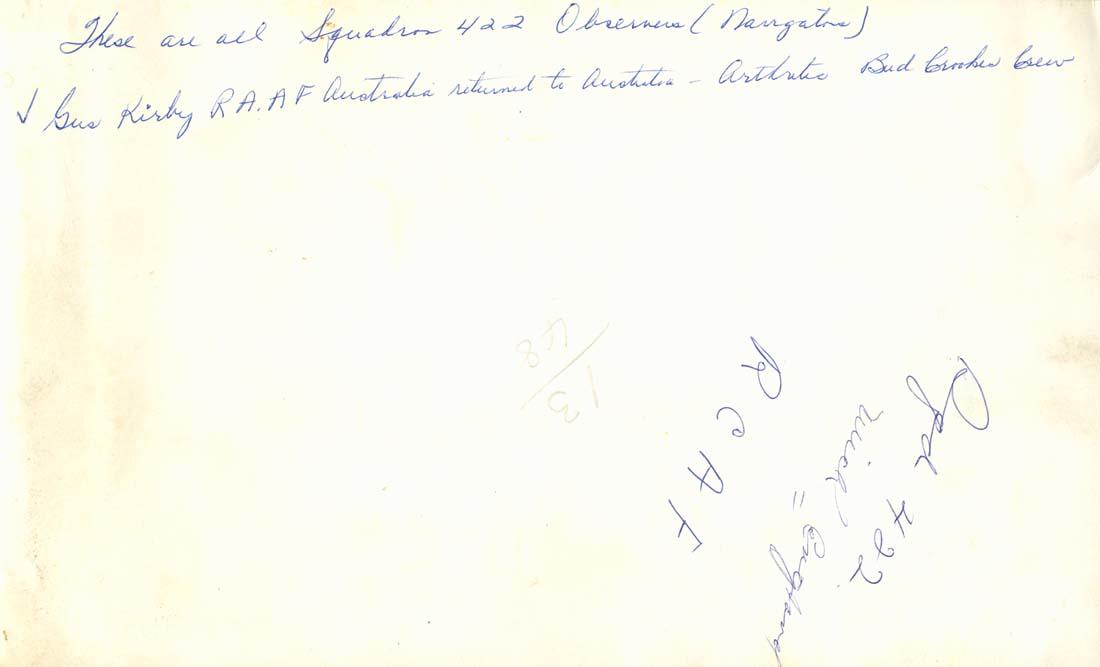 These are all Squadron 422 Observers (Navigators)
✓ Gus Kirby R.A.A F Australia returned to Australia - Arthritis Bud Crooker Crew
48/13
R C A F
422
England